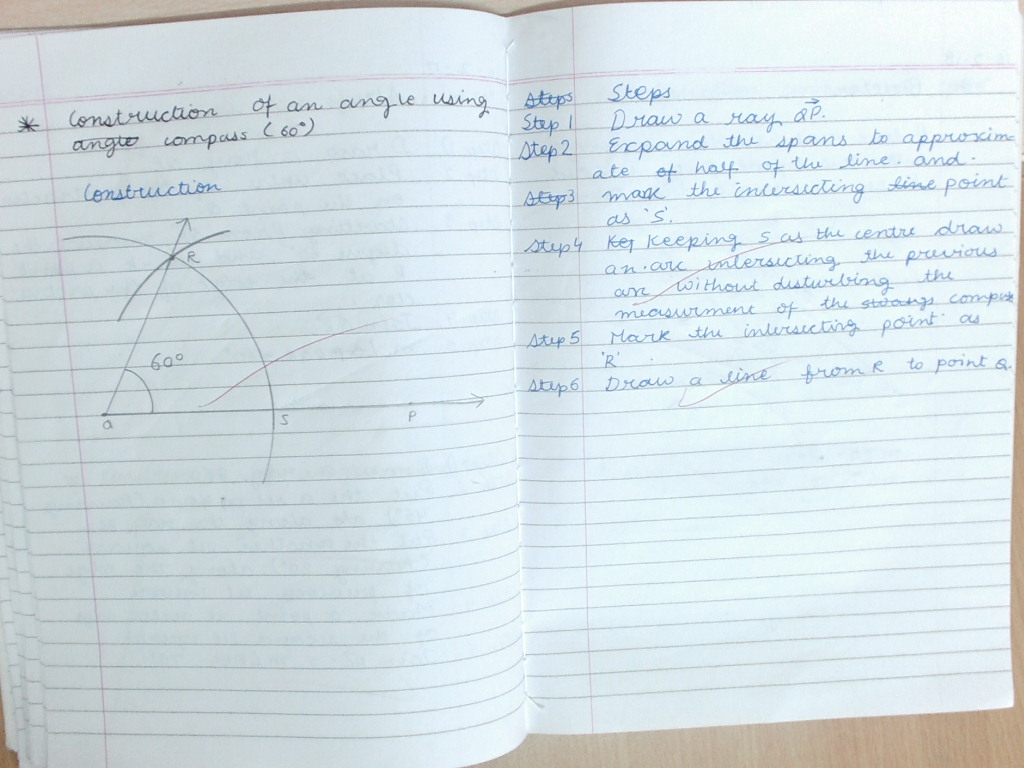 * Construction of an angle using
angle compass (60°)
Construction
R
60°
Q
S
P
Steps Steps
Step 1 Draw a ray QP.
Step 2 Expand the spans to approxim
ate of half of the line. and.
Step 3 mark the intersecting line point
as 'S'.
Step 4 Keeping S as the centre draw
an arc intersecting the previous
arc without disturbing the
measurment of the compass
Step 5 Mark the intersecting point as
'R'.
Step 6 Draw a line from R to point Q.